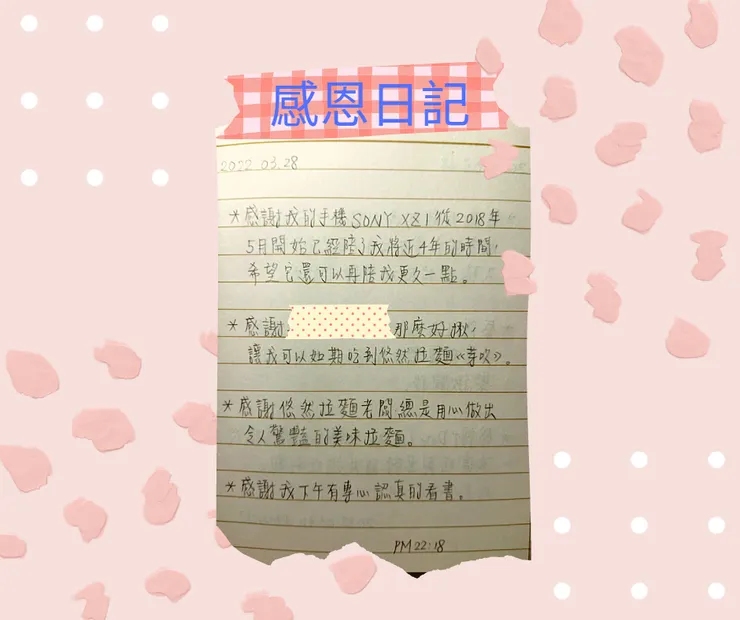 感恩日記
2022.03.28
*感謝我的手機SONY XZ1從2018年
5月開始已經陪了我將近4年的時間,
希望它還可以再陪我更久一點。
*感謝
那麼好揪,
讓我可以如期吃到悠然拉麵《芽吹》。
*感謝悠然拉麵老闆總是用心做出
令人驚豔的美味拉麵。
*感謝我下午有專心認真的看書。
PM 22:18